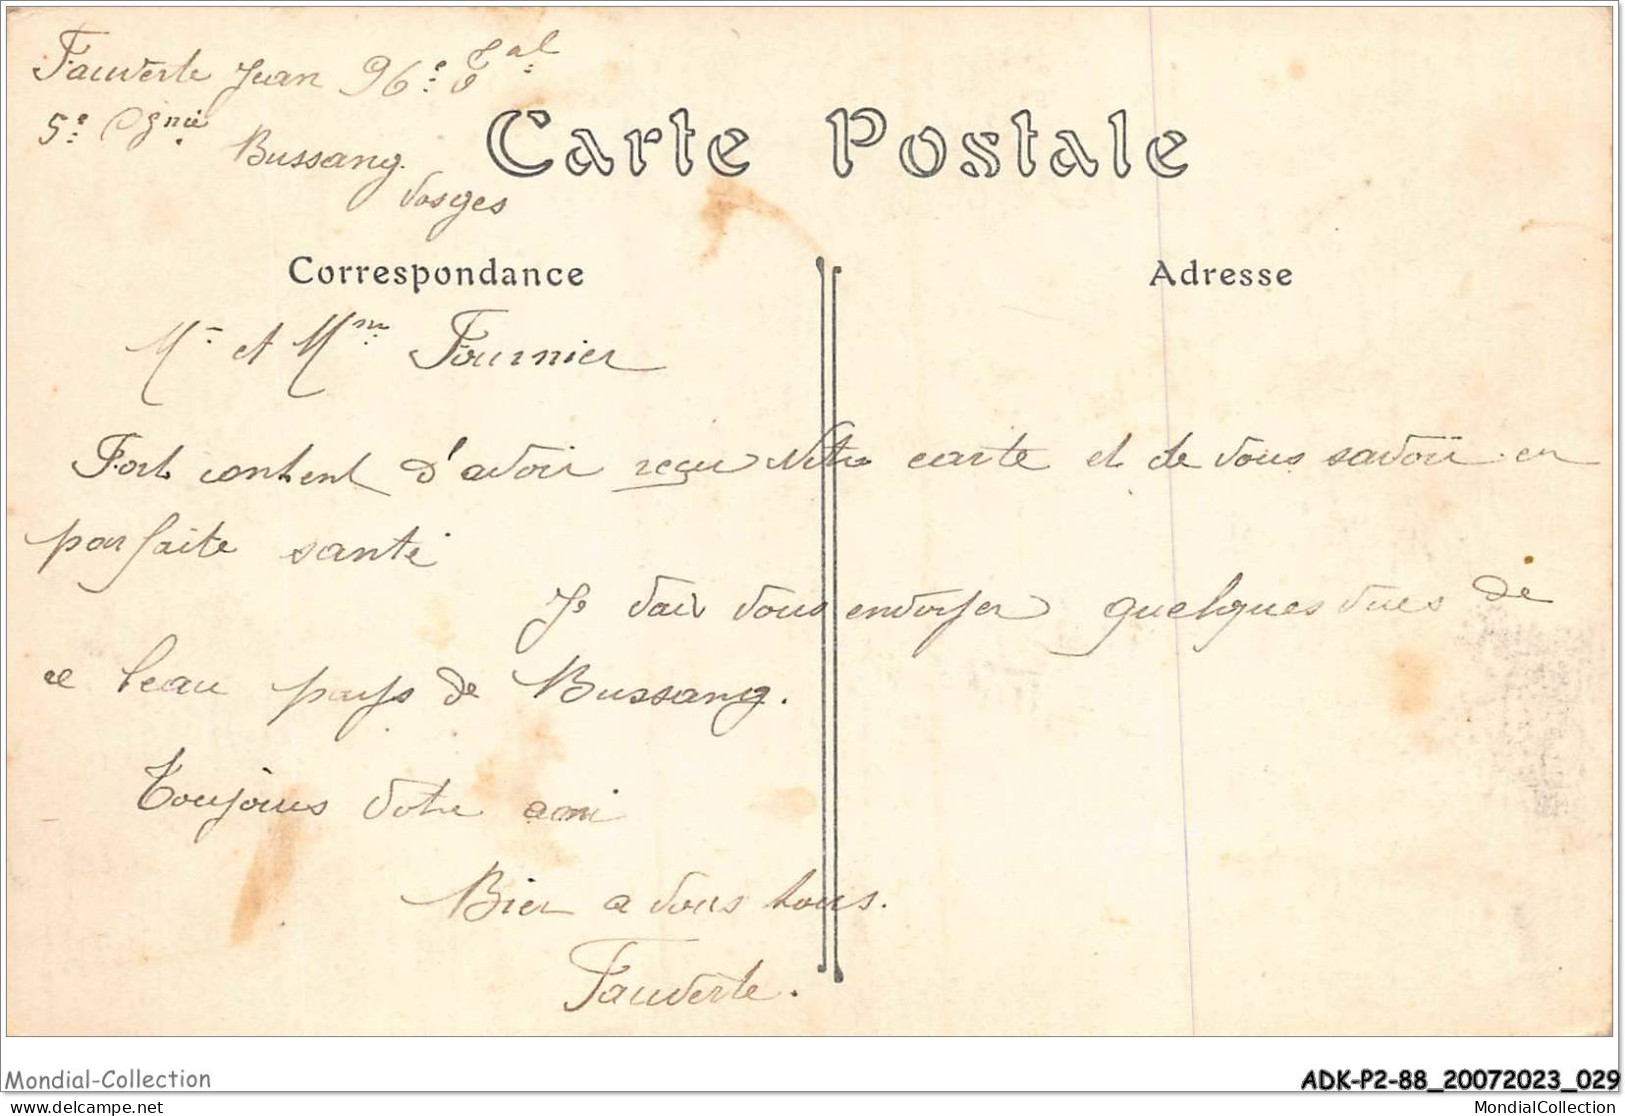 Fauverte Jean 96e: Tal:
5e: Cgnie.
Bussang.
Vosges
Carte Postale
Correspondance
Adresse
Mr et Mme: Fournier
Fort content d'avoir reçu votre carte et de vous savoir en
parfaite santé
Je vais vous envoyer quelques vues de
ce beau pays de Bussang.
Toujours votre ami
Bien a vous tous.
Fauverte.
Mondial-Collection
ADK-P2-88_20072023_029
delcampe.net
MondialCollection